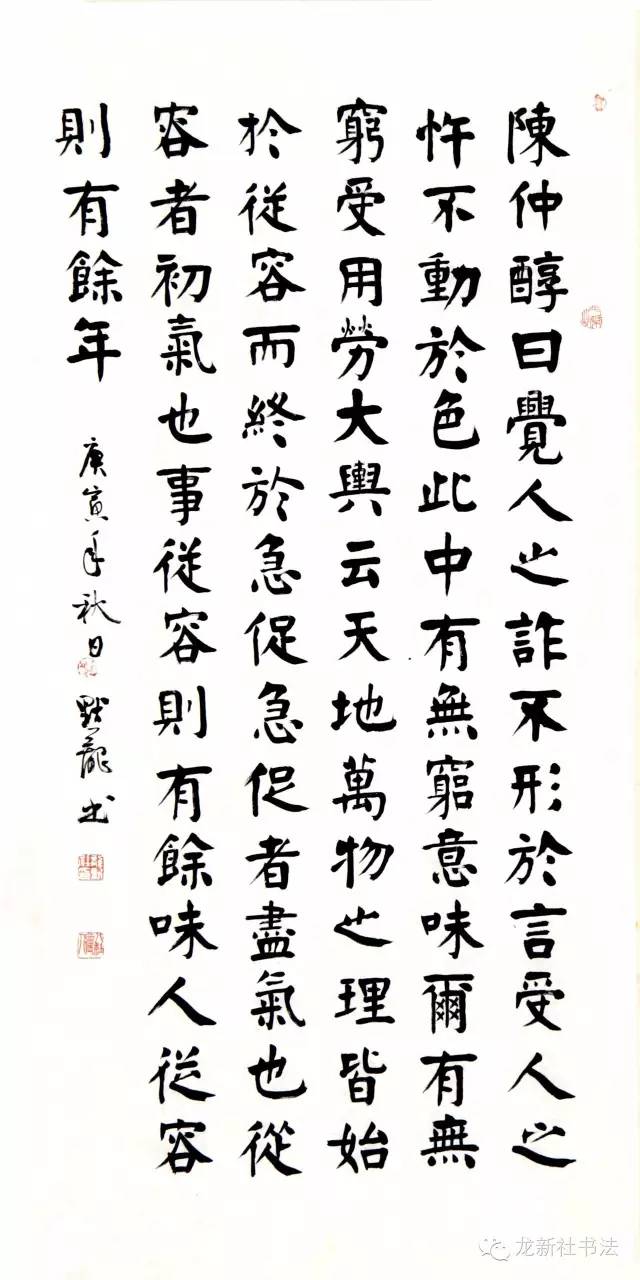 陳仲醇曰覺人之詐不形於言受人之
忤不動於色此中有無窮意味爾有無
窮受用勞大輿云天地萬物之理皆始
於從容而終於急促急促者盡氣也從
容者初氣也事從容則有餘味人從容
則有餘年
庚寅年秋日 默龍书
龙新社书法